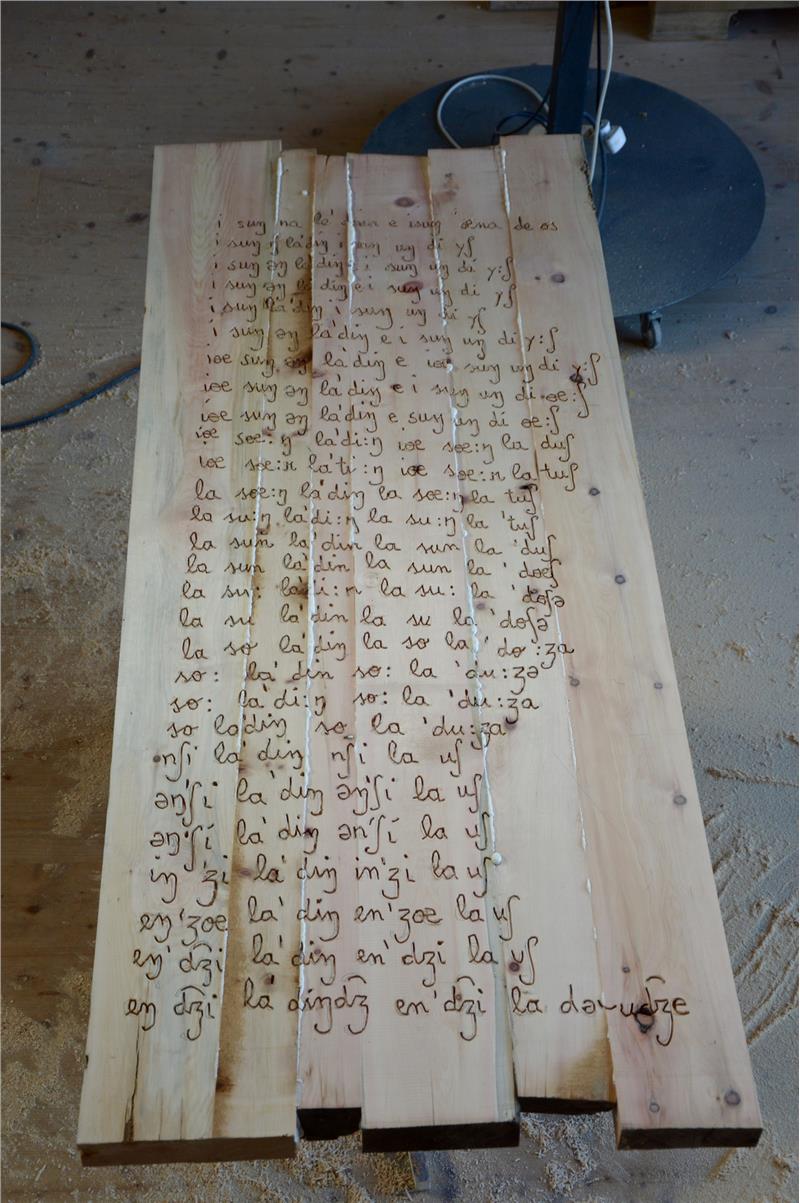 i suŋ na la'dina e isuŋ 'œna de os
i suŋ ŋ la'diŋ i suŋ uŋ di yʃ
i suŋ əŋ la'diŋ e i suŋ uŋ di y:ʃ
i suŋ əŋ la'diŋ e i suŋ uŋ di yʃ
i suŋ la'diŋ i suŋ uŋ di yʃ
i suŋ əŋ la'diŋ e i suŋ uŋ di y:ʃ
iœ suŋ əŋ la'diŋ e iœ suŋ uŋ di y:ʃ
iœ suŋ əŋ la'diŋ e i suŋ uŋ di œ:ʃ
iœ suŋ əŋ la'diŋ e suŋ uŋ di œ:ʃ
iœ sœ:ŋ la'di:ŋ iœ sœ:ŋ la duʃ
iœ sœ:n la'ti:ŋ iœ sœ:n la tuʃ
la sœ:ŋ la'diŋ la sœ:ŋ la tuʃ
la su:ŋ la'di:ŋ la su:ŋ la 'tuʃ
la sun la'din la sun la 'duʃ
la sun la'din la sun la 'dœʃ
la su: la'di:n la su: la 'doʃə
la su la'din la su la 'doʃə
la so la'diŋ la so la 'do:ʒa
so: la'din so: la 'du:ʒə
so: la'di:ŋ so: la 'du:ʒa
so la'diŋ so la 'du:ʒa
nʃi la'diŋ nʃi la uʃ
əŋ'ʃi la'diŋ əŋ'ʃi la uʃ
əŋ'ʃi la'diŋ ən'ʃi la uʃ
iŋ'ʒi la'diŋ in'ʒi la uʃ
eŋ'ʒœ la'diŋ en'ʒœ la uʃ
eŋ'd͡ʒi la'diŋ en'dʒi la uʃ
eŋ d͡ʒi la'diŋd͡ʒ en'd͡ʒi la də‿ud͡ʒe